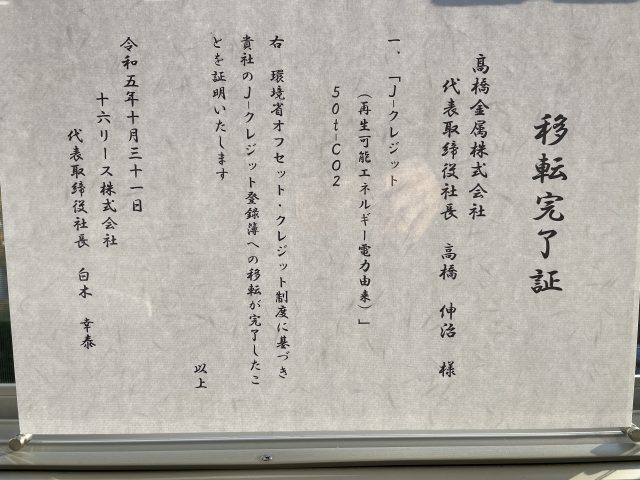 移転完了証
髙橋金属株式会社
代表取締役社長　髙橋　伸治　様
一、「J-クレジット
（再生可能エネルギー電力由来）」
50t-CO2
右　環境省オフセット・クレジット制度に基づき
貴社のJ-クレジット登録簿への移転が完了したこ
とを証明いたします
以上
令和五年十月三十一日
十六リース株式会社
代表取締役社長　白木　幸泰